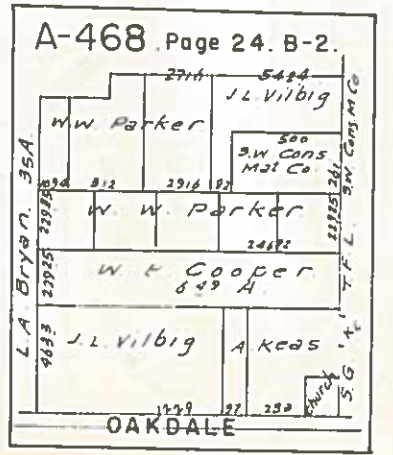 A-468 Page 24. B-2.
2716 5424
J.L. Vilbig
W.W. Parker
500
S.W Cons
Mat Co.
S.W. Cons. M Co.
L.A. Bryan. 35A
312 2916 92
261
22925
22925
W. W. Parker
W. F. Cooper
6 49 A
22925
T.F.L.
S.G.
4633
J.L. Vilbig
A Keas
Church
97 292
OAKDALE